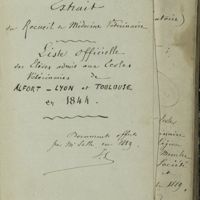 Extrait
du Recueil de Médecine Vétérinaire
Liste Officielle
des Elèves admis aux Ecoles
Vétérinaires de
ALFORT _ LYON et TOULOUSE
en 1844
Documents offerts
par Mr
en 1889
Société
en 1889